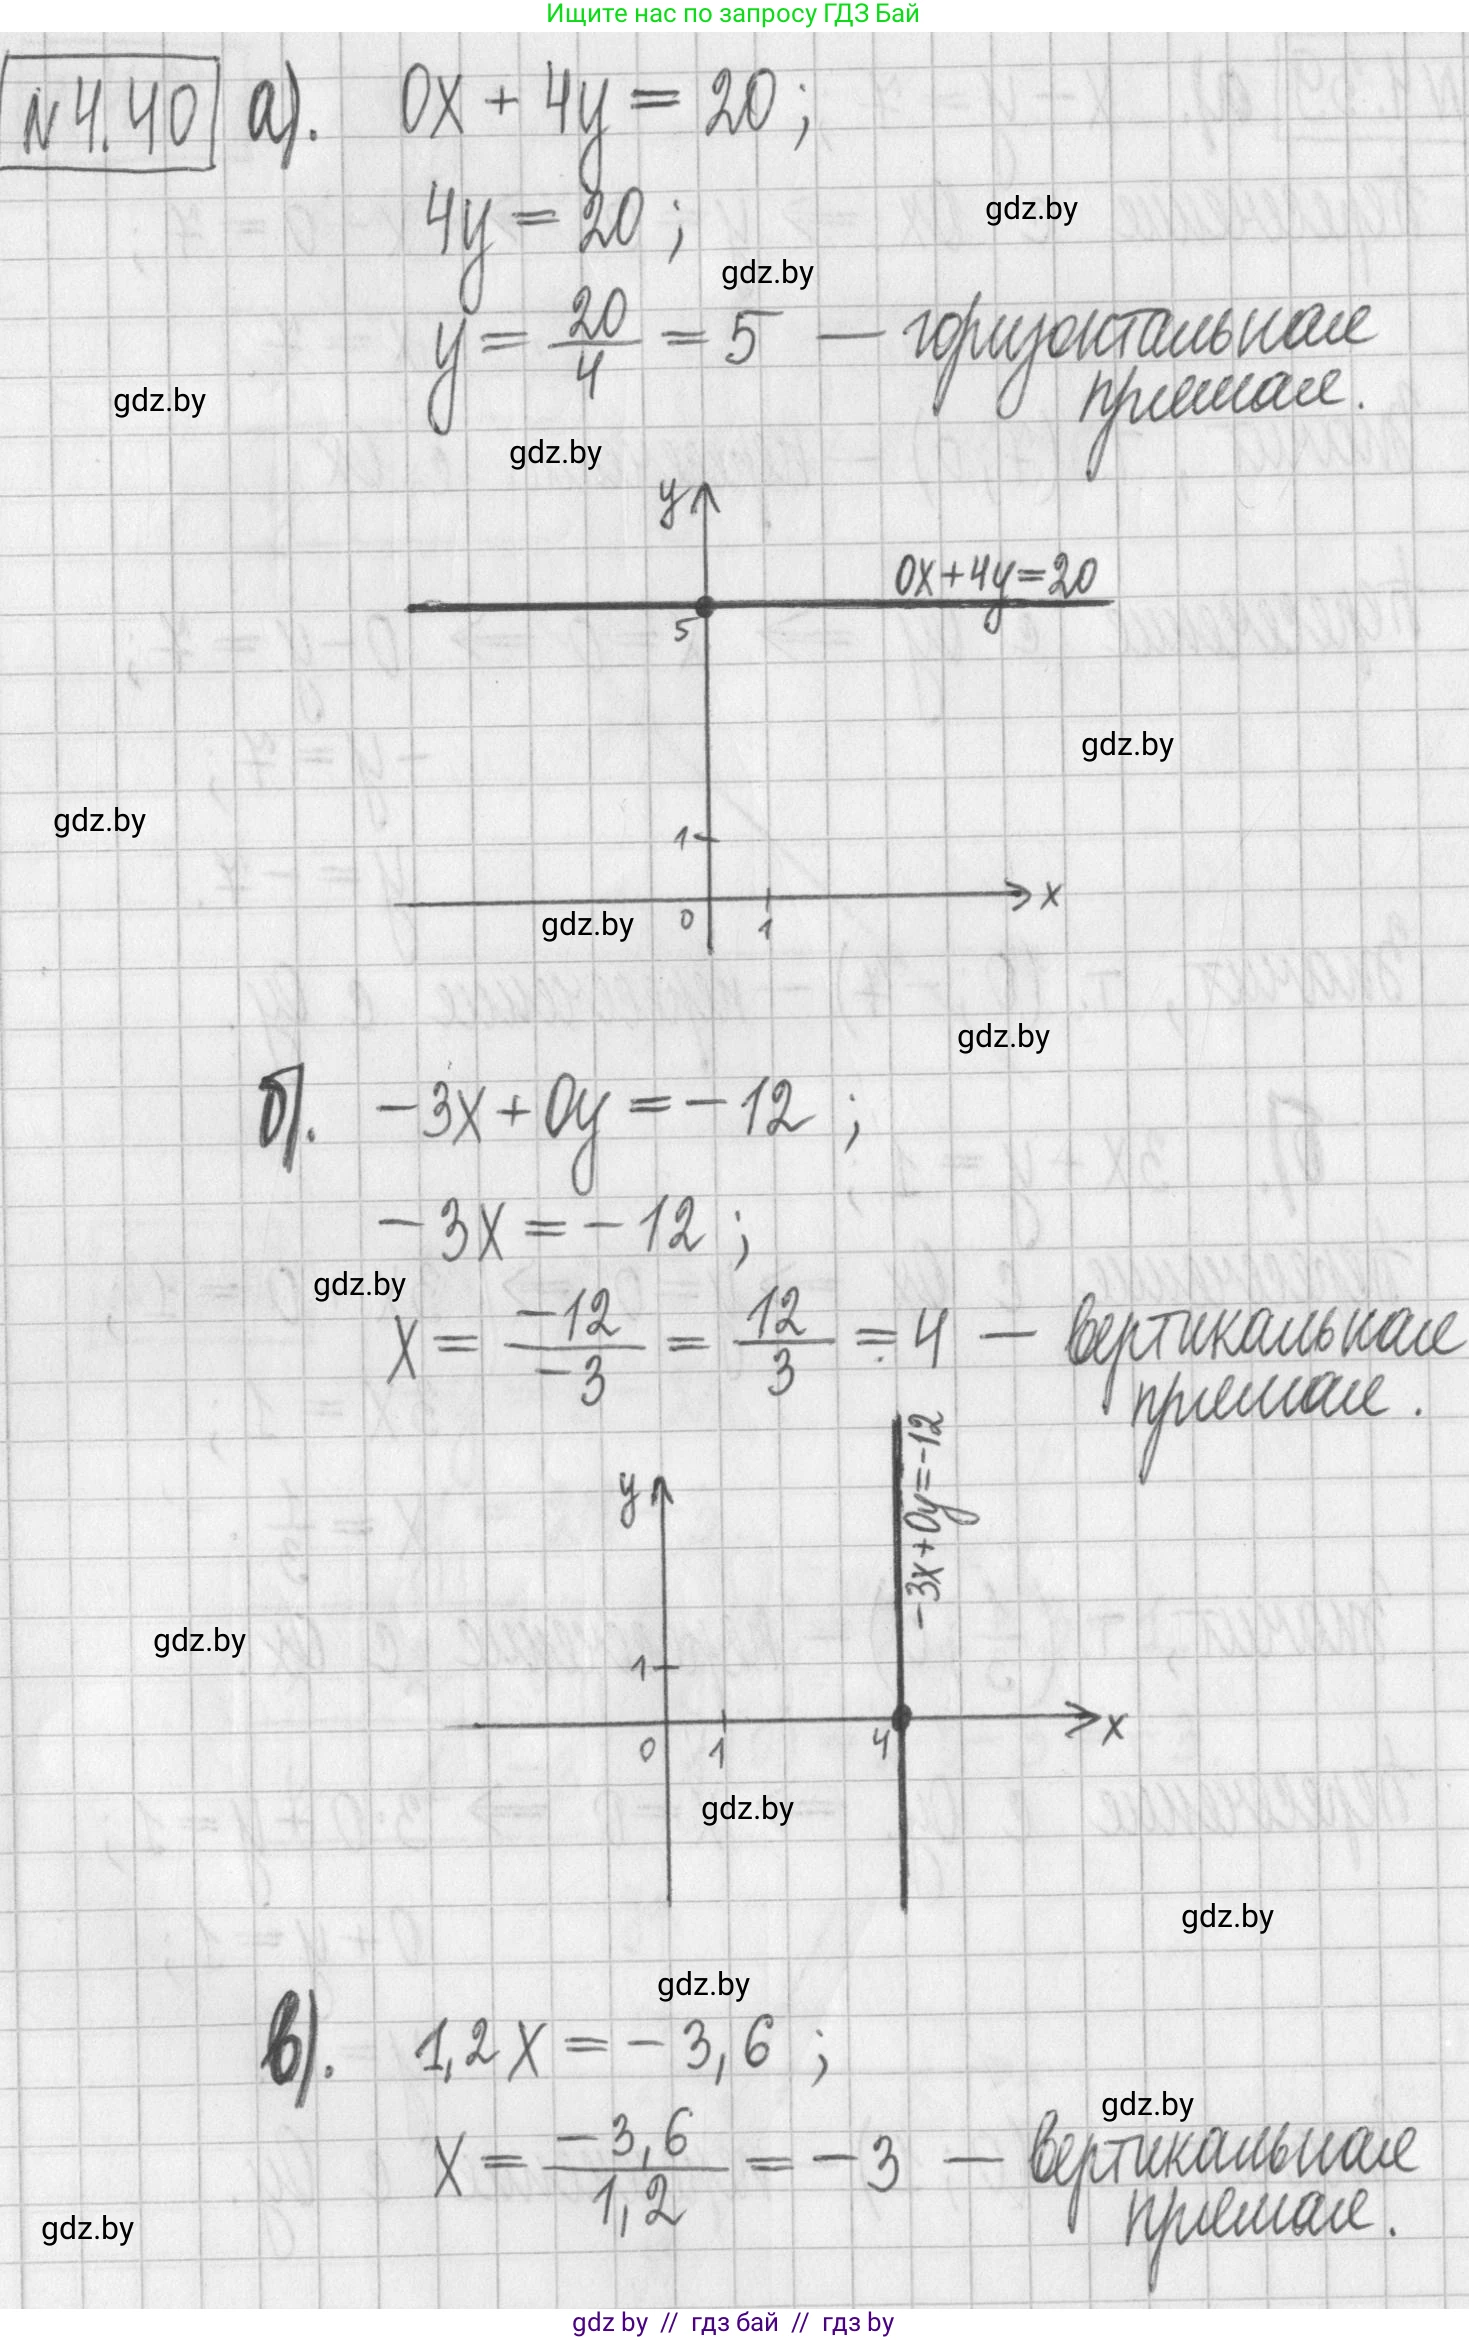 Ищите нас по запросу ГДЗ Бай
№4.40 а). 0x + 4y = 20;
4y = 20;
gdz.by
gdz.by
y = 20/4 = 5 — горизонтальная
прямая.
gdz.by
gdz.by
y
0x+4y=20
5
gdz.by
gdz.by
1
x
0
1
gdz.by
gdz.by
б). -3x + 0y = -12;
-3x = -12;
gdz.by
x = -12/-3 = 12/3 = 4 — вертикальная
прямая.
-3x+0y=-12
y
gdz.by
1
0
1
4
x
gdz.by
gdz.by
gdz.by
в). 1,2x = -3,6;
gdz.by
x = -3,6/1,2 = -3 — вертикальная
прямая.
gdz.by
gdz by // гдз бай // гдз by